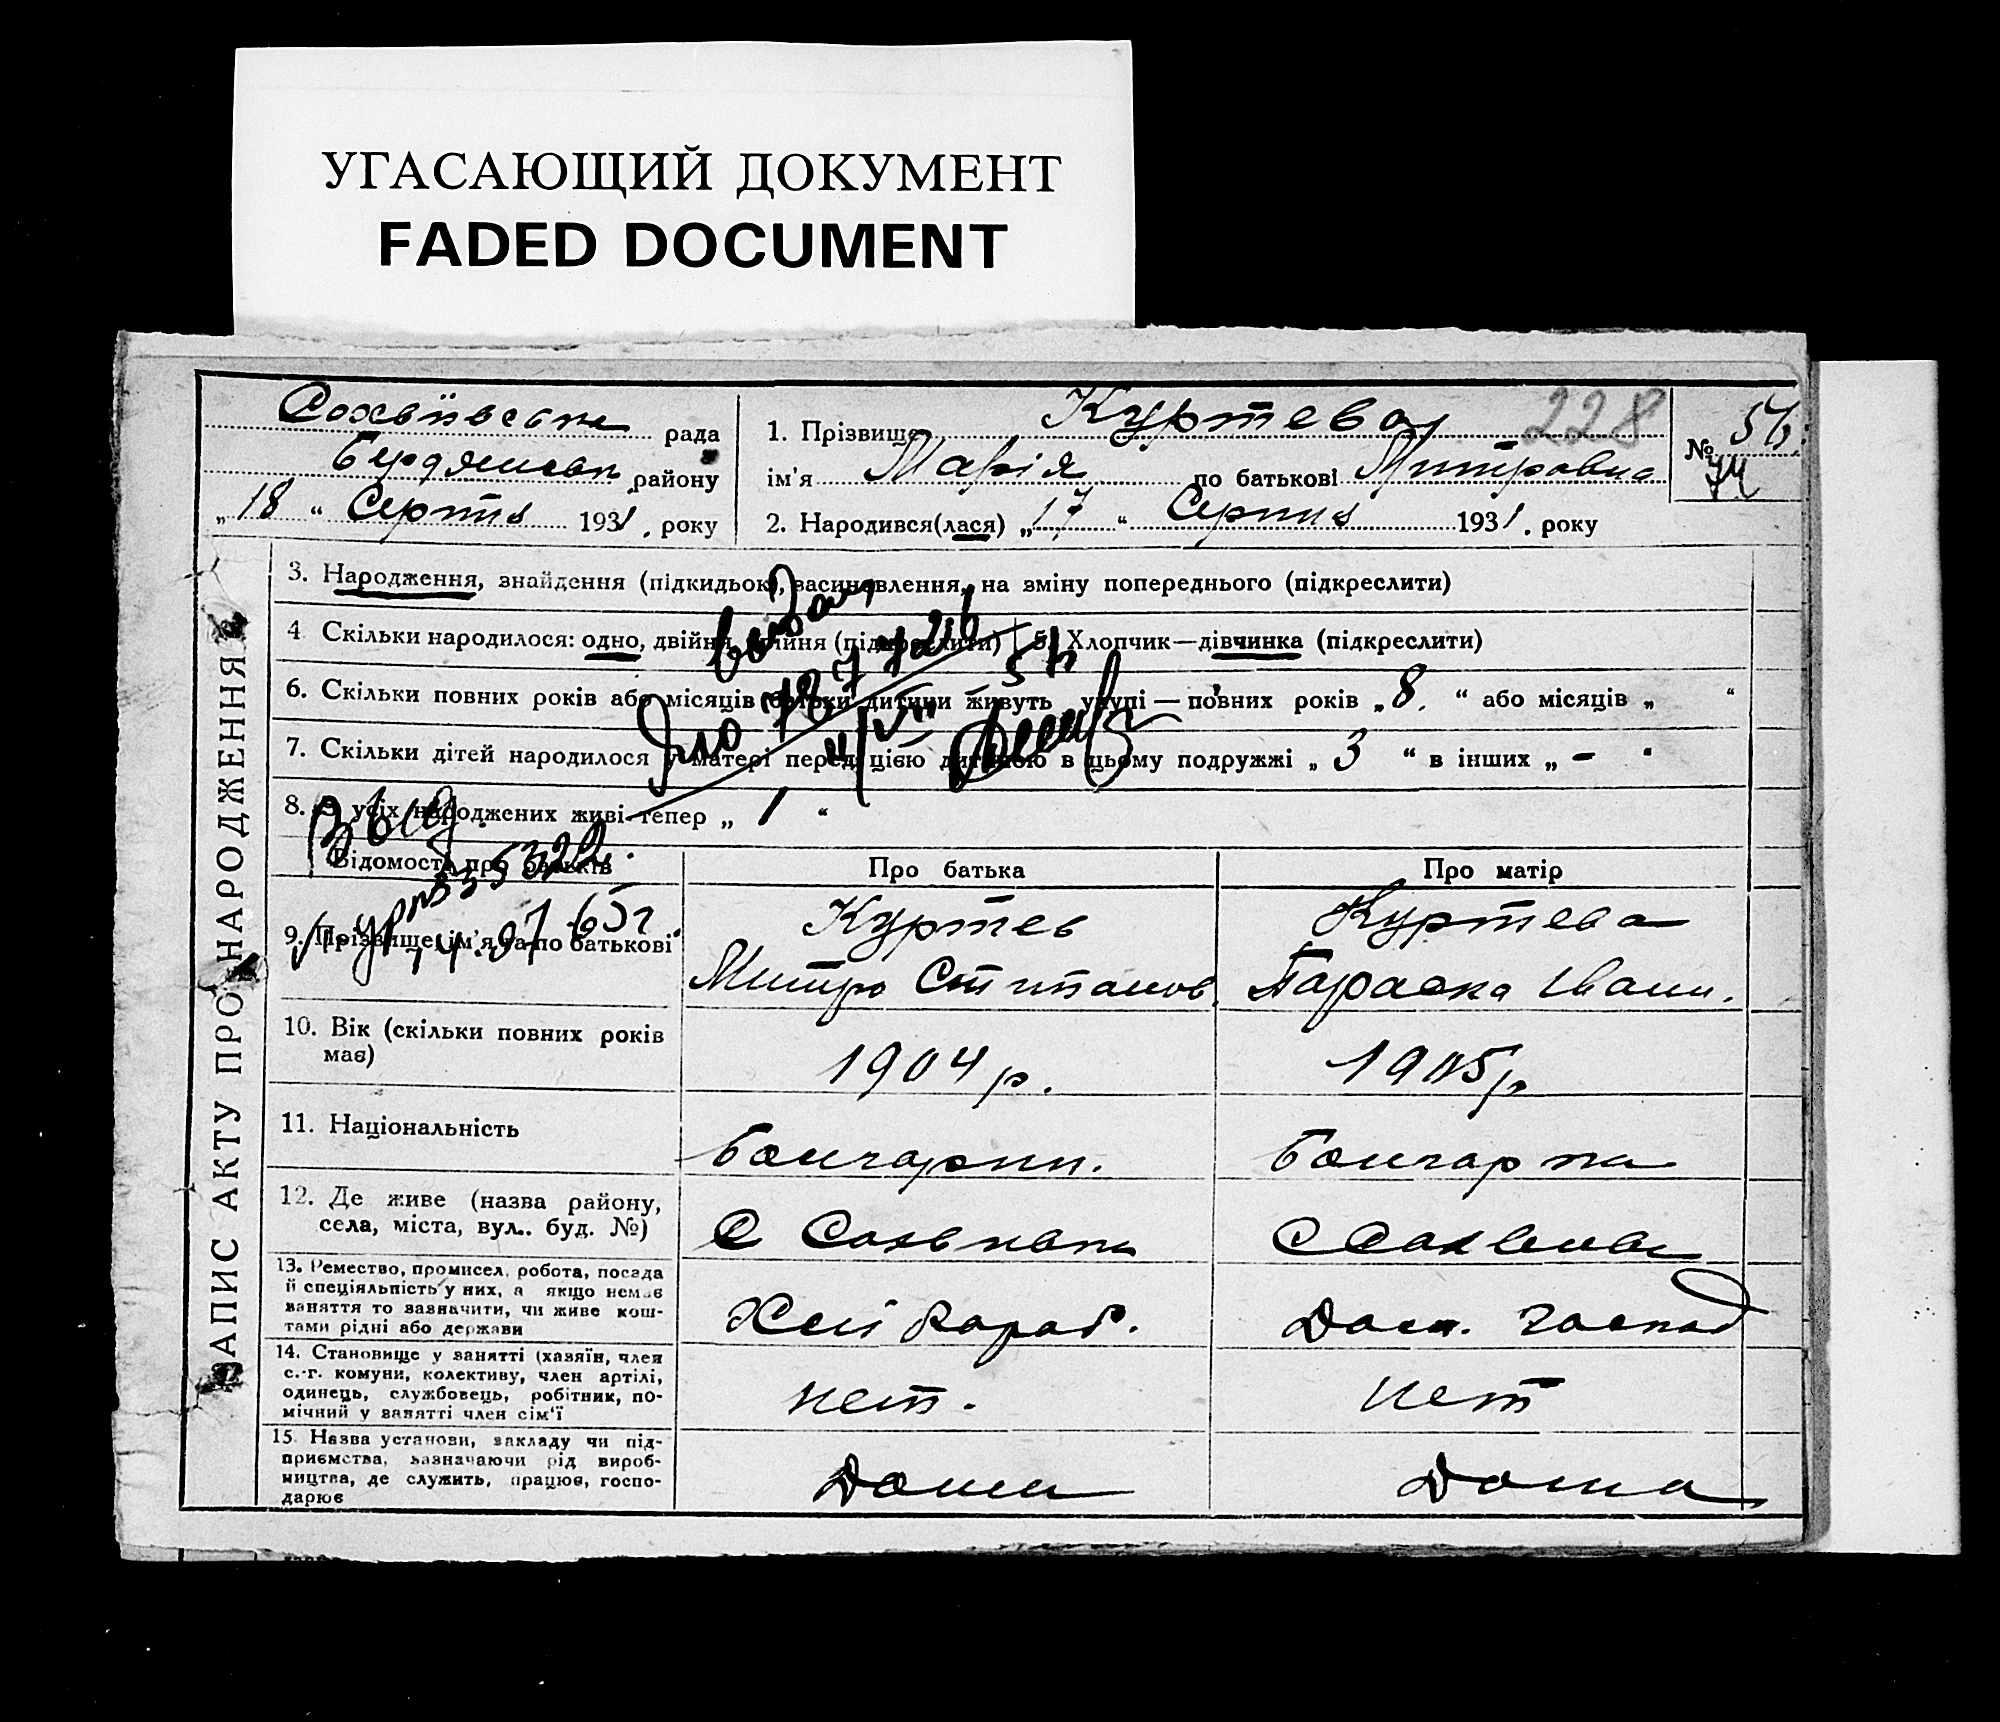 УГАСАЮЩИЙ ДОКУМЕНТ
FADED DOCUMENT
рада
району
„18“ Серпня 1931. року
1. Прізвище Куртева 228
ім'я Марія по батькові Митровна
2. Народився(лася) „17“ Серпня 1931. року
№ 54
74
ЗАПИС АКТУ ПРО НАРОДЖЕННЯ
3. Народження, знайдення (підкидьок), засиновлення, на зміну попереднього (підкреслити)
4 Скільки народилося: одно, двійня, трійня (підкреслити) 5. Хлопчик—дівчинка (підкреслити)
6. Скільки повних років або місяців батьки дитини живуть укупі — повних років „8.“ або місяців „ “
7. Скільки дітей народилося у матері перед цією дитиною в цьому подружжі „3“ в інших „-“
8. З усіх народжених живі тепер „1“
Відомості про батьків Про батька Про матір
9. Прізвище, ім'я та по батькові
Куртев Куртева
Митро Степанов. Параска Іван.
10. Вік (скільки повних років має) 1904 р. 1905 р
11. Національність Болгарин. Болгарка
12. Де живе (назва району,
села, міста, вул.. буд. №)
13. Ремество, промисел, робота, посада
й спеціяльність у них, а якщо немає
заняття то зазначити, чи живе кош-
тами рідні або держави
Хлібораб. Дом. господ
14. Становище у занятті (хазяїн, член
с.-г. комуни, колективу, член артілі,
одинець, службовець, робітник, по-
мічний у занятті член сім'ї
нет. нет
15. Назва установи, закладу чи під-
приємства, зазначаючи рід вироб-
ництва, де служить, працює, госпо-
дарює
Дома Дома